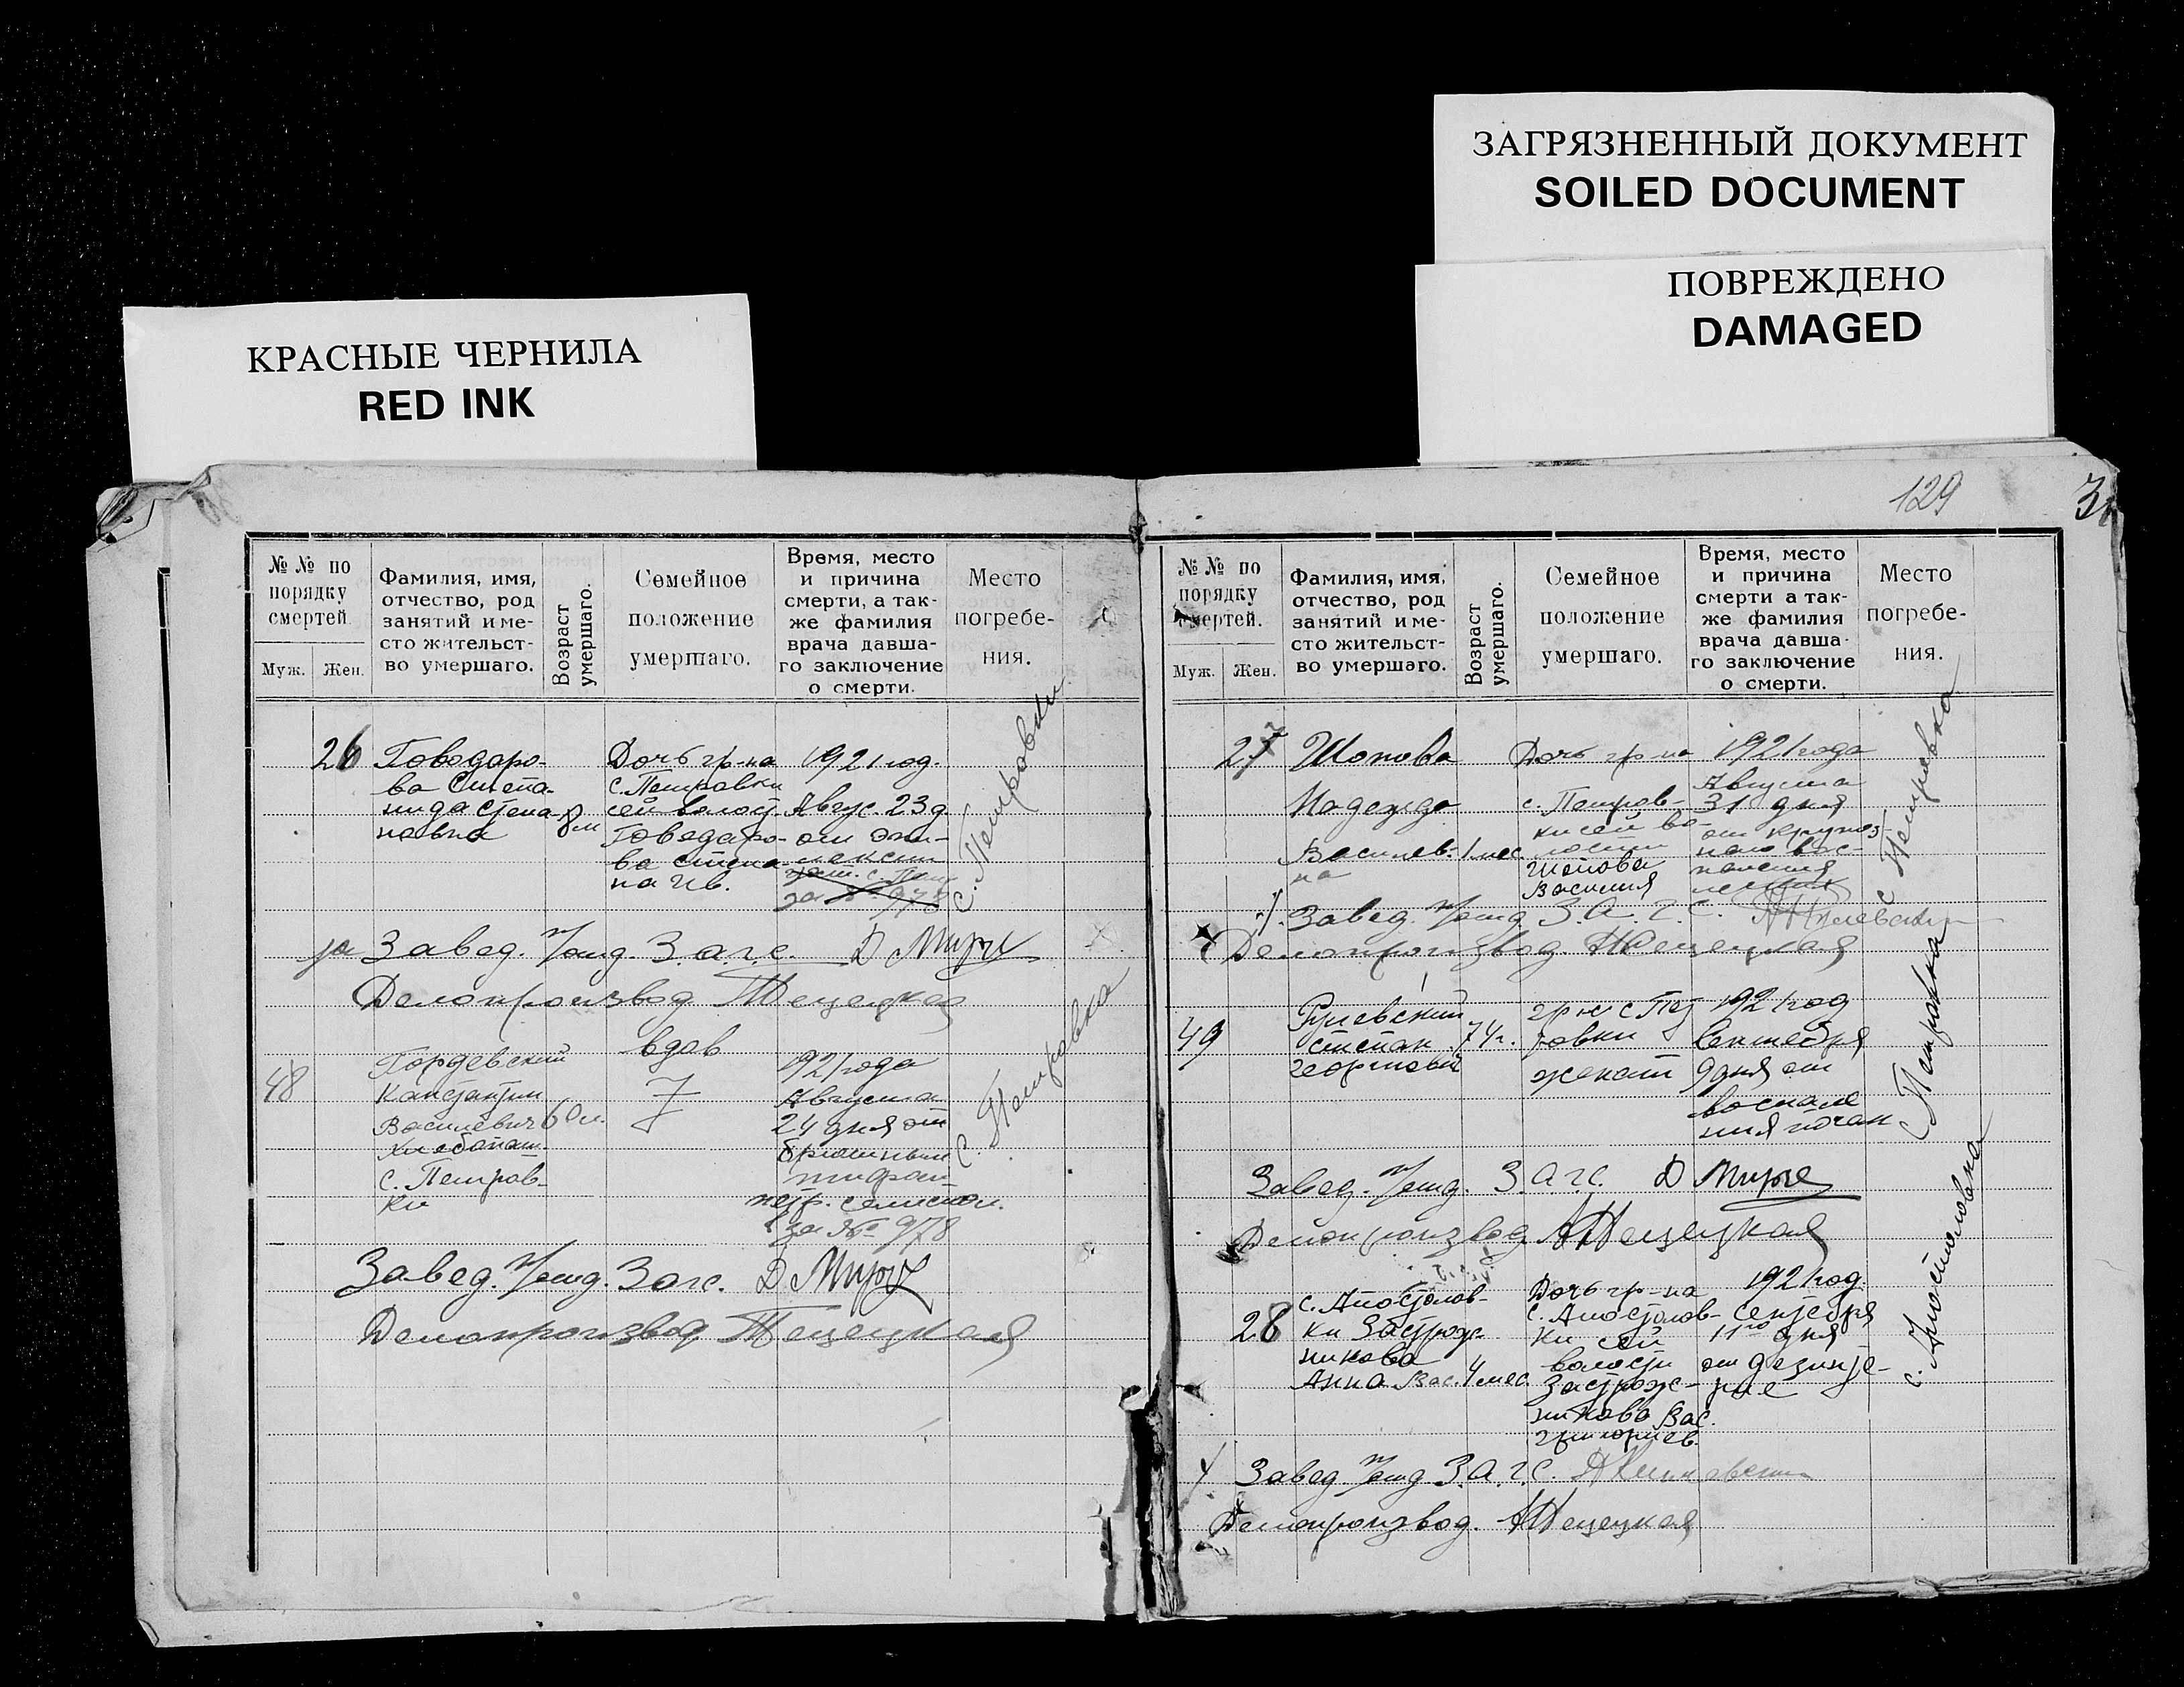 ЗАГРЯЗНЕННЫЙ ДОКУМЕНТ
SOILED DOCUMENT
ПОВРЕЖДЕНО
DAMAGED
КРАСНЫЕ ЧЕРНИЛА
RED INK
№ № по
порядку
смертей
Муж.
Жен.
Фамилия, имя,
отчество, род
занятий и ме-
сто жительст-
во умершаго.
Возраст
умершаго.
Семейное
положение
умершаго.
Время, место
и причина
смерти, а так-
же фамилия
врача давша-
го заключение
о смерти.
Место
погребе-
ния.
26
Говодаро-
ва Степа-
нида Степа-
новна
8 м
Дочь гр-на
с. Петровки
сей волост.
Говодаро-
ва Степа-
на Ив.
1921 год.
Авгус. 23 д.
от
за № 978
с. Петровки
за Завед. З.а.г.с.
Делопроизвод. Тецецкая
48
Гордевский
Константин
Василевич
Хлебопаш.
с. Петров-
ки
60 л.
вдов
1921 года
Августа
24 дня от
брюшный
тифа
за № 978
с. Петровка
Завед. Загс.
Делопроизвод Тецецкая
129
3
№ № по
порядку
смертей.
Муж.
Жен.
Фамилия, имя,
отчество, род
занятий и ме-
сто жительст-
во умершаго.
Возраст
умершаго.
Семейное
положение
умершаго.
Время, место
и причина
смерти а так-
же фамилия
врача давша-
го заключение
о смерти.
Место
погребе-
ния.
27
Шопова
Надежда
Василев-
на
1 мес
Дочь гр-на
с. Петров-
ки сей во-
лости
Шопова
Василия
1921 года
Августа
31 дня
от крупоз-
наго вос-
паления
с Петровка
Завед. З.А.Г.С.
Делопроизвод. Тецецкая
49
Степан
Георгиевич
74 г.
гр-н с Пет
ровки
женат
1921 год
Сентября
9 дня от
воспале
ния почек
с Петровка
Завед. З.А.Г.С.
Делопроизвод Тецецкая
28
с. Апостолов-
ки Застрож
никова
Анна Вас.
4 мес
Дочь гр-на
с. Апостолов-
ки сей
волости
Застрож-
никова Вас.
Григориев.
1921 год.
Сентября
11го дня
от дезинте-
рие
с. Апостоловка
Завед. З.А.Г.С.
Делопроизвод. Тецецкая